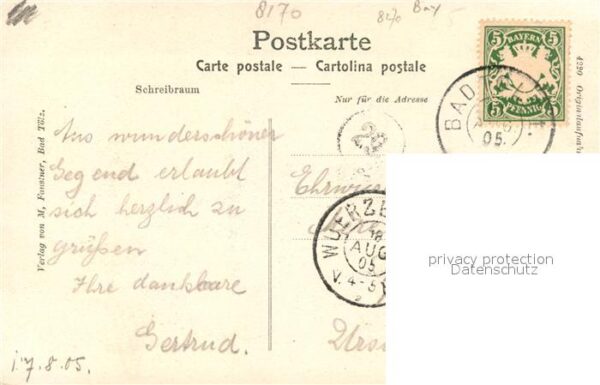 8170
8170 Bay
Postkarte
Carte postale — Cartolina postale
Schreibraum
Nur für die Adresse
BAYERN
5 5
5 PFENNIG 5
BAD
05.
4290
Verlag von M. Fonstner, Bad Tölz.
Aus wunderschöner
Gegend erlaubt
sich herzlich zu
grüßen
Ihre dankbare
Gertrud.
17.8.05.
Ehrwür
WUERZB
18
AUG
05
V. 4-5
Urs
privacy protection
Datenschutz